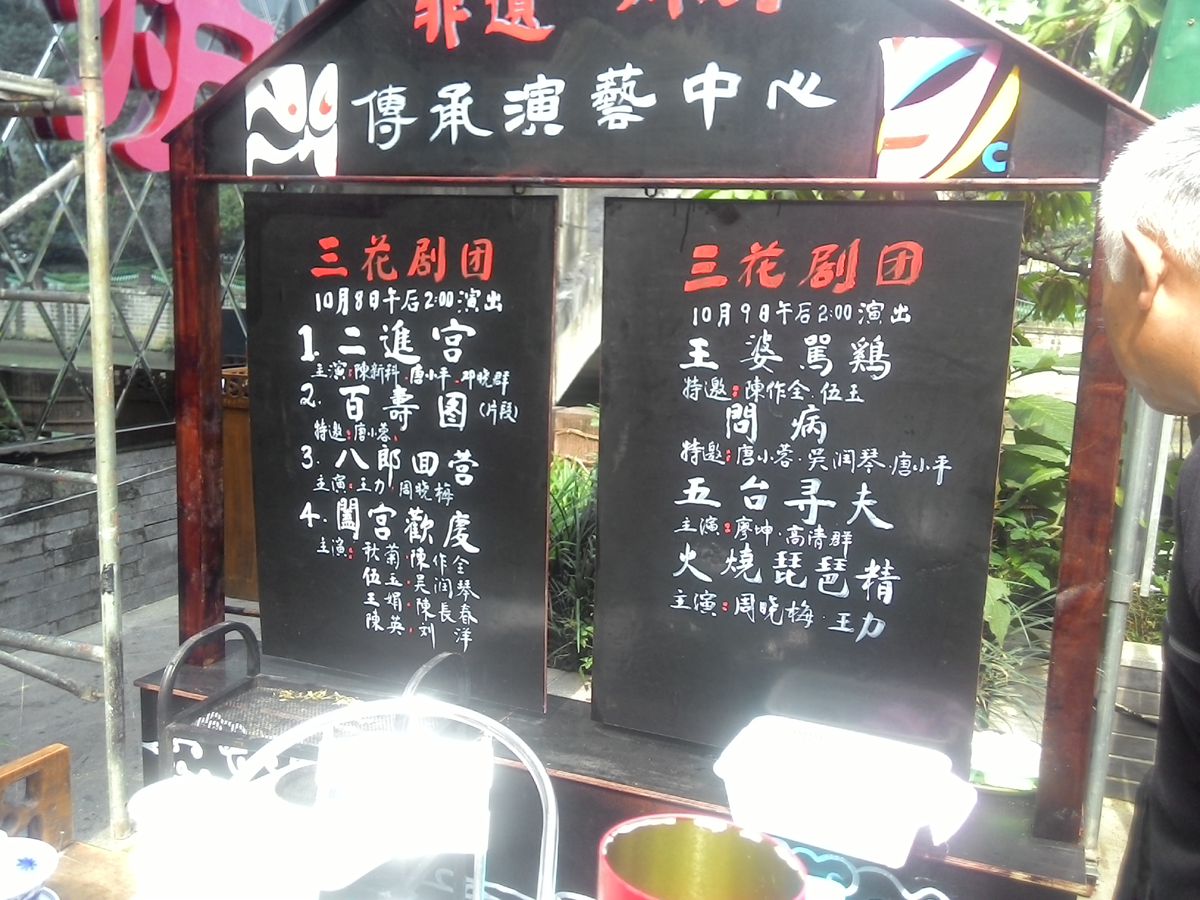 非遗
傳承演藝中心
三花剧团
10月8日午后2:00演出
1.二進宫
主演:陳新科.唐小平.邓晓群
2.百壽图(片段)
特邀:唐小蓉.
3.八郎回营
主演:王力.周晓梅
4.闔宫歡慶
主演:秋菊.陳作全
伍玉.吴润琴
王娟.陳長春
陳英.刘洋
三花剧团
10月9日午后2:00演出
王婆駡鷄
特邀:陳作全.伍玉
問病
特邀:唐小蓉.吴润琴.唐小平
五台寻夫
主演:廖坤.高清群
火燒琵琶精
主演:周晓梅.王力
C